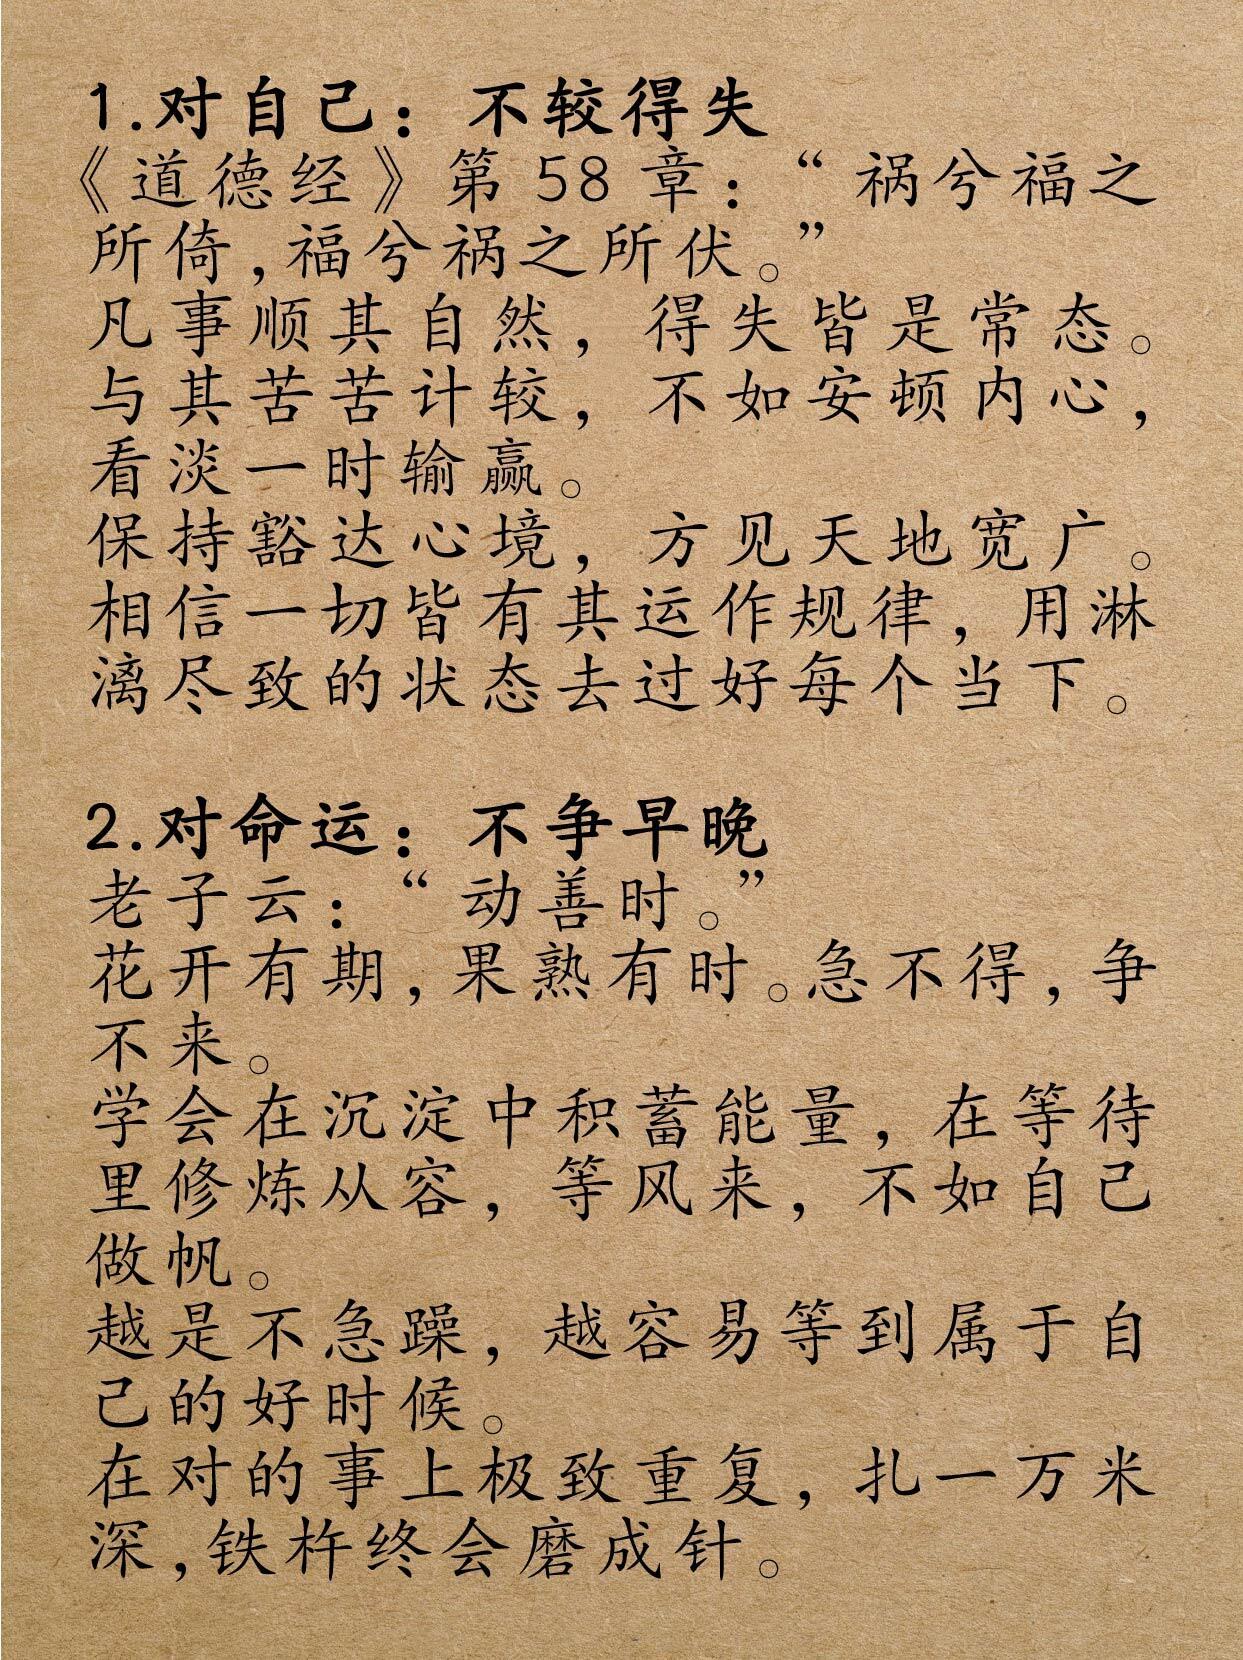 1.对自己：不较得失
《道德经》第58章：“祸兮福之
所倚,福兮祸之所伏。”
凡事顺其自然，得失皆是常态。
与其苦苦计较，不如安顿内心，
看淡一时输赢。
保持豁达心境，方见天地宽广。
相信一切皆有其运作规律，用淋
漓尽致的状态去过好每个当下。
2.对命运：不争早晚
老子云：“动善时。”
花开有期,果熟有时。急不得,争
不来。
学会在沉淀中积蓄能量，在等待
里修炼从容，等风来，不如自己
做帆。
越是不急躁，越容易等到属于自
己的好时候。
在对的事上极致重复，扎一万米
深,铁杵终会磨成针。